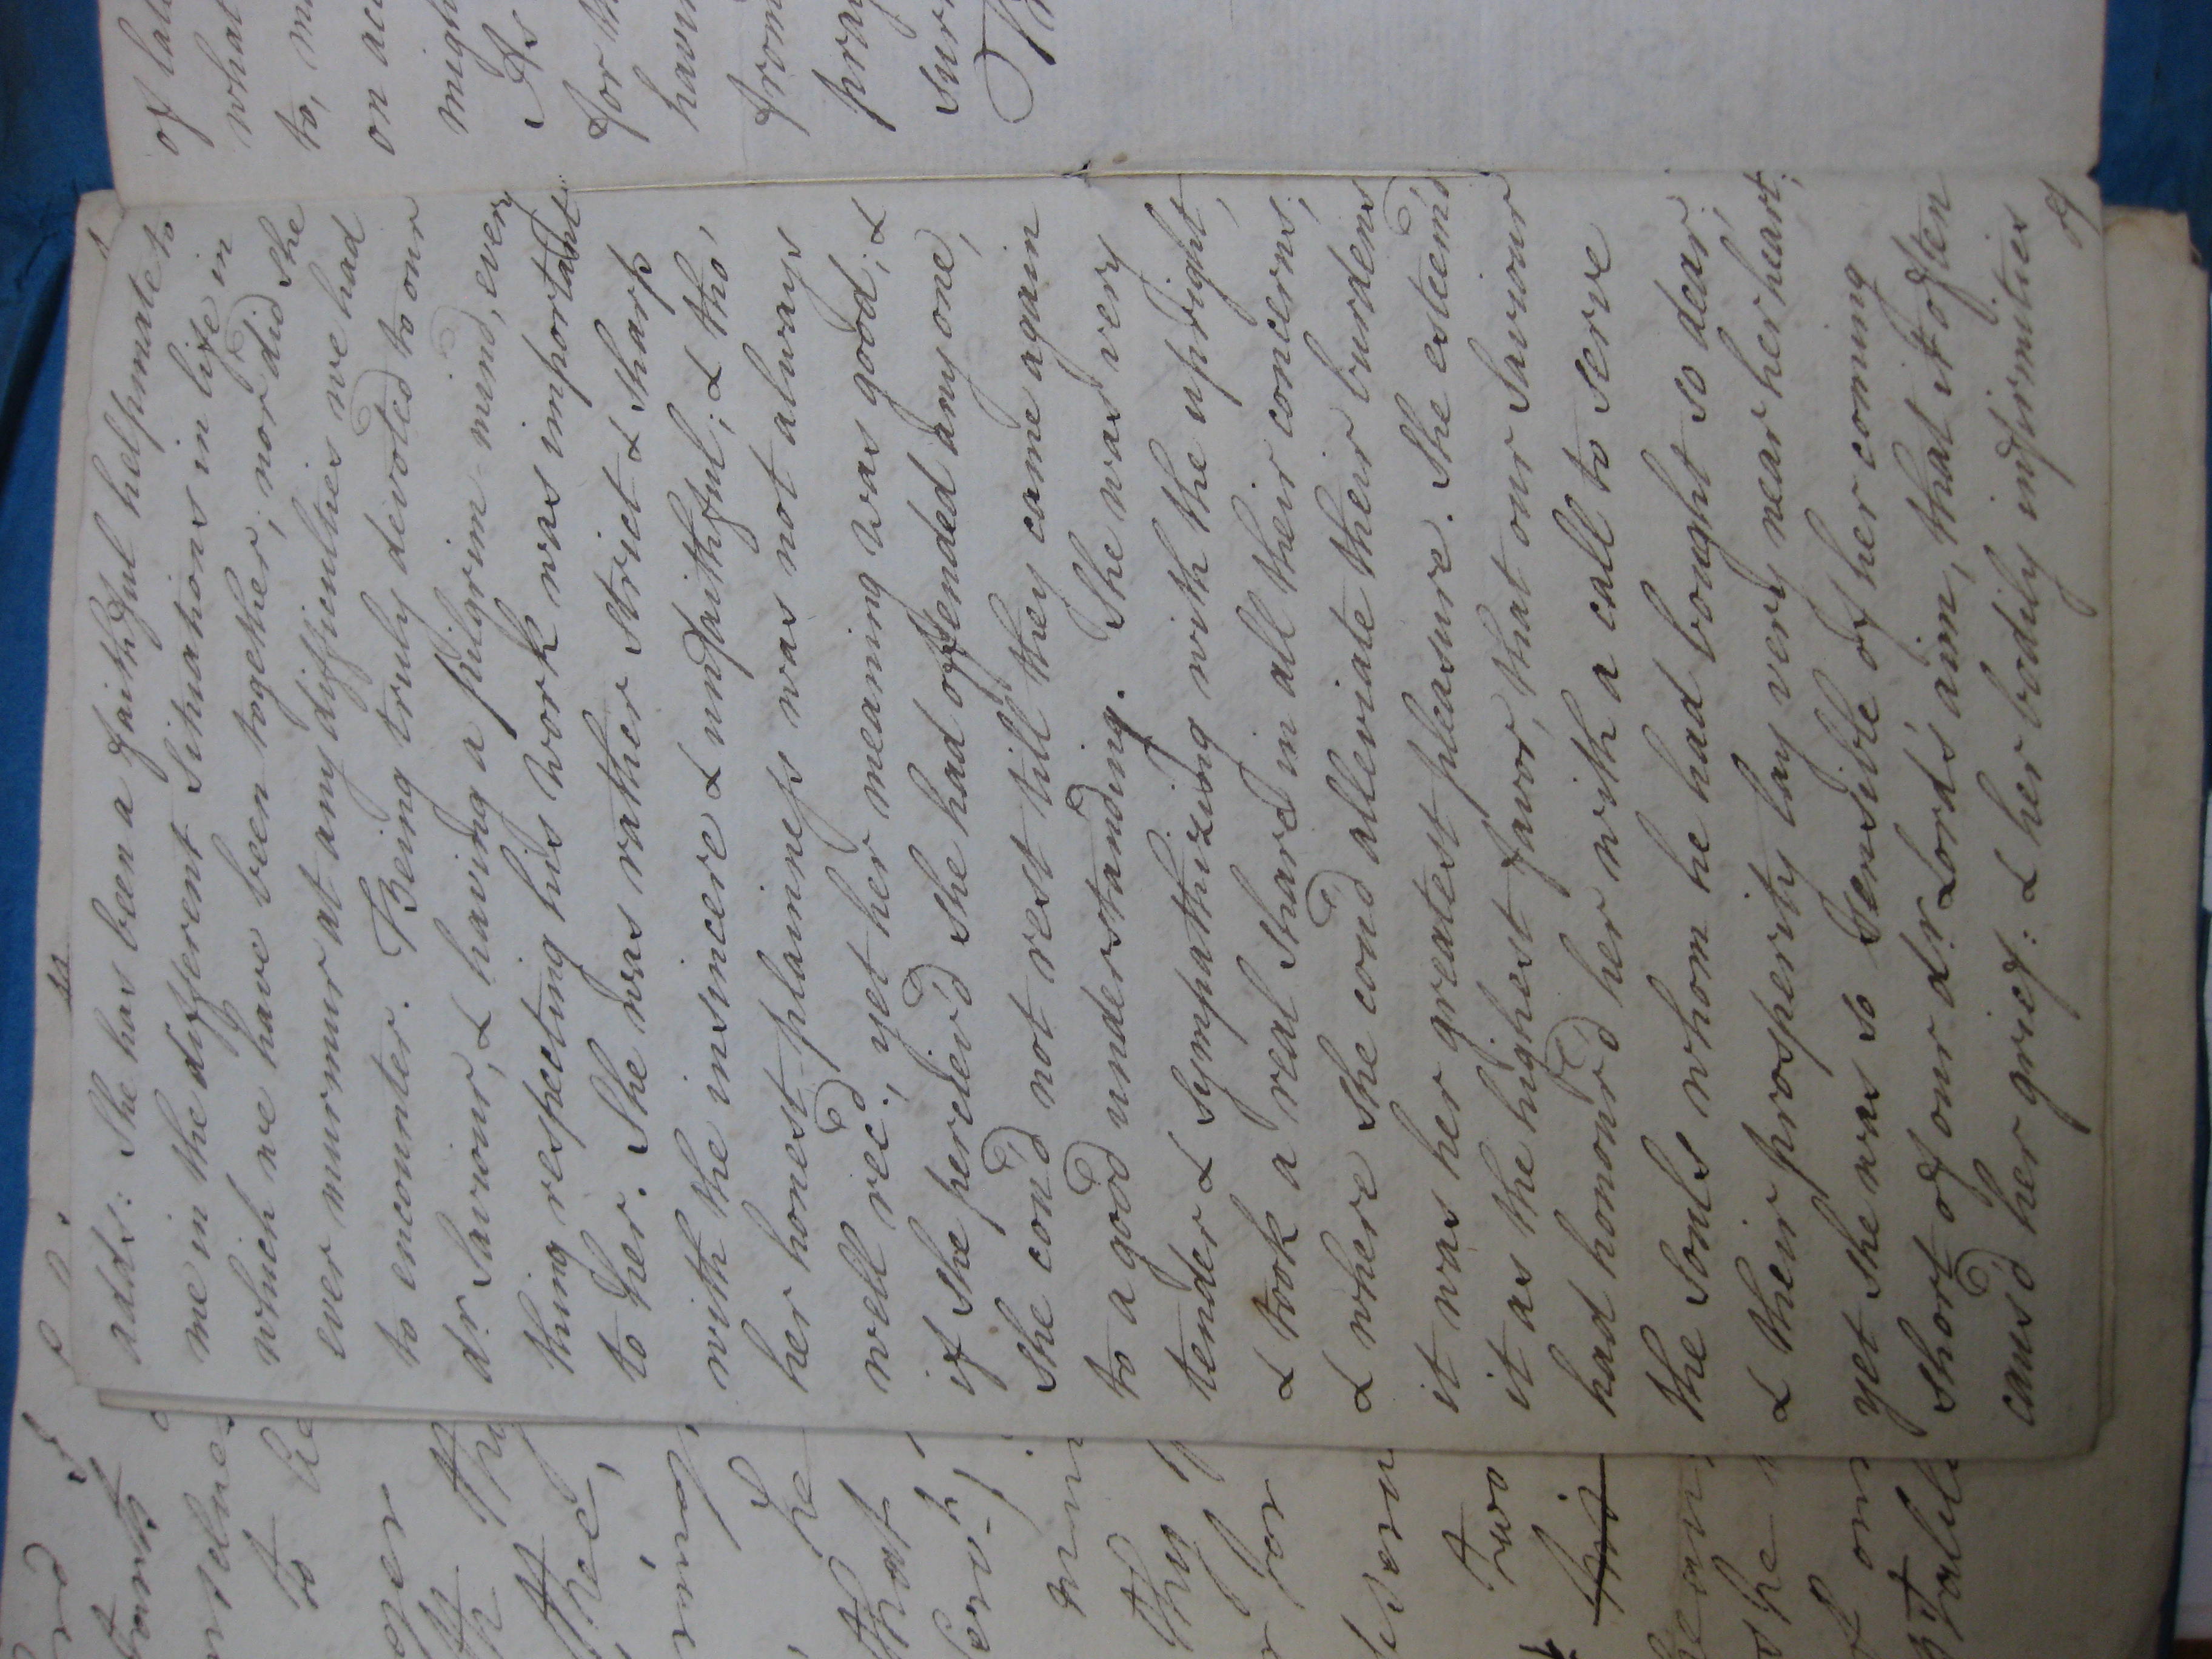 adds: She has been a faithful helpmate to
me in the different Situations in life in
which we have been together; nor did she
ever murmur at any difficulties we had
to encounter. Being truly devoted to our
dr. Saviour, & having a pilgrim mind, every
thing respecting his work was important
to her. She was rather strict & sharp
with the insincere & unfaithful; & tho'
her honest plainness was not always
well rec'd., yet her meaning was good; &
if she perciev'd she had offended any one,
she cou'd not rest till they came again
to a good understanding. She was very
tender & sympathizing with the upright,
& took a real share in all their concerns;
& where she cou'd alleviate their burdens
it was her greatest pleasure. She esteem'd
it as the highest favor, that our Saviour
had honour'd her with a call to serve
the Souls whom he had bought so dear;
& their prosperity lay very near her heart;
yet she was so sensible of her coming
short of our dr. Lord's aim, that it often
caus'd her grief: & her bodily infirmities
of
thee,
he
that
thy
for
two
his
she
of
what
to,
on
As
for
from